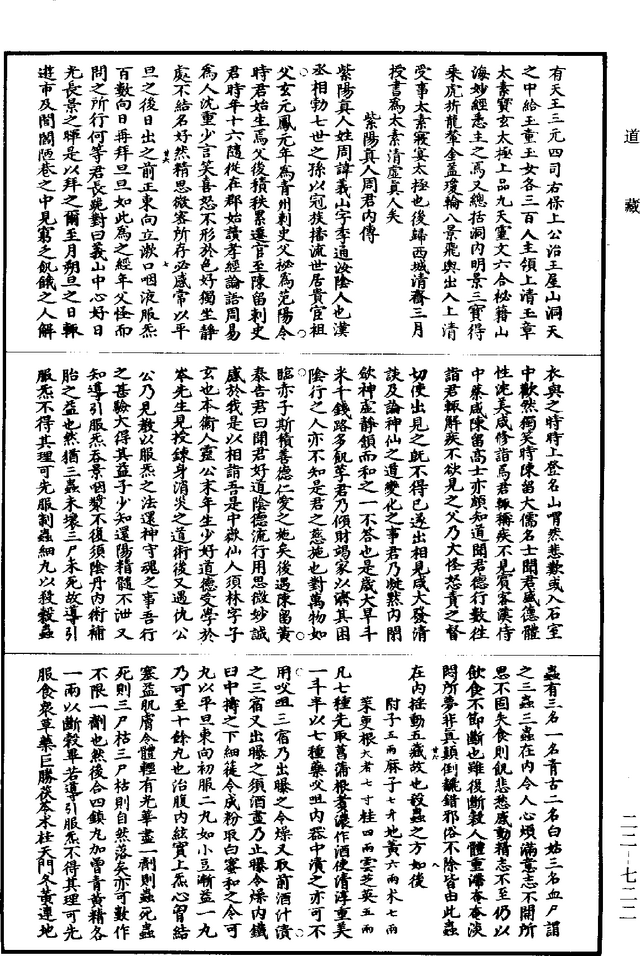 道藏
有天王三元四司右保上公治王屋山洞天
之中給玉童玉女各三百人主領上清玉章
太素寶玄太極上品九天靈文六合秘籍山
海妙經悉主之焉又總括洞內明景三寶得
乘虎旂龍輦金蓋瓊輪八景飛輿出入上清
受事太素寢宴太極也後歸西城清齋三月
授書為太素清虛真人矣
紫陽真人周君內傳
紫陽真人姓周諱義山字季通汝陰人也漢
丞相勃七世之孫以冠族播流世居貴官祖
父玄元鳳元年為青州刺史父祕為范陽令
時君始生焉父後積秩累遷官至陳留刺史
君時年十六隨從在郡始讀孝經論語周易
為人沈重少言笑喜怒不形於色好獨坐靜
處不結名好然精思微密所存必感常以平
旦之後日出之前正東向立漱口咽液服炁
百數向日再拜旦旦如此為之經年父怪而
問之所行何等君長跪對曰義山中心好日
光長景之暉是以拜之爾至月朔旦之日輒
遊市及閭閻陋巷之中見窮乏飢餓之人解
衣與之時時上登名山喟然悲歎或入石室
中歡然獨笑時陳留大儒名士聞君盛德體
性沈美咸修詣焉君輒稱疾不見賓客漢侍
中蔡咸陳留高士亦頗知道聞君德行數往
詣君輒解疾不欲見之父乃大怪怒責之督
切使出見之既不得已遂出相見咸大發清
談及論神仙之道變化之事君乃凝默內閉
斂神虛靜頷而和之一不答也是歲大旱斗
米千錢路多飢莩君乃傾財竭家以濟其困
陰行之人亦不知是君之慈施也對萬物如
臨赤子斯積善德仁愛之施矣後遇陳留黃
泰告君曰聞君好道陰德流行用思微妙誠
感於我是以相詣吾是中嶽仙人須林字子
玄也本衛人靈公末年生少好道德受學於
岑先生見授鍊身消災之道術後又遇仇公
公乃見教以服炁之法還神守魂之事吾行
之甚驗大得其益子少知還陽精髓不泄又
知導引服炁吞景咽漿不復須陰丹內術補
胎之益也然猶三蟲未壞三尸未死故導引
服炁不得其理可先服制蟲細丸以殺穀蟲
蟲有三名一名青古二名白姑三名血尸謂
之三蟲三蟲在內令人心煩滿意志不開所
思不固失食則飢悲愁感動精志不至仍以
飲食不節斷也雖復斷穀人體重滯奄奄淡
悶所夢非真顛倒飜錯邪俗不除皆由此蟲
在內搖動五藏故也殺蟲之方如後
附子五兩麻子七升地黃六兩朮七兩
茱萸根大者七寸桂四兩雲芝英五兩
凡七種先取菖蒲根煮濃作酒使清淳重美
一斗半以七種藥㕮咀內器中漬之亦可不
用㕮咀三宿乃出曝之令燥又取前酒汁漬
之三宿又出曝之須酒盡乃止曝令燥內鐵
臼中擣之下細簁令成粉取白蜜和之令可
丸以平旦東向初服二丸如小豆漸益一丸
乃可至十餘丸也治腹內絃實上炁心胷結
塞益肌膚令體輕有光華盡一劑則蟲死蟲
死則三尸枯三尸枯則自然落矣亦可數作
不限一劑也然後合四鎮丸加曾青黃精各
一兩以斷穀畢若導引服炁不得其理可先
服食衆草藥巨勝茯苓朮桂天門冬黃連地
二二一七二二